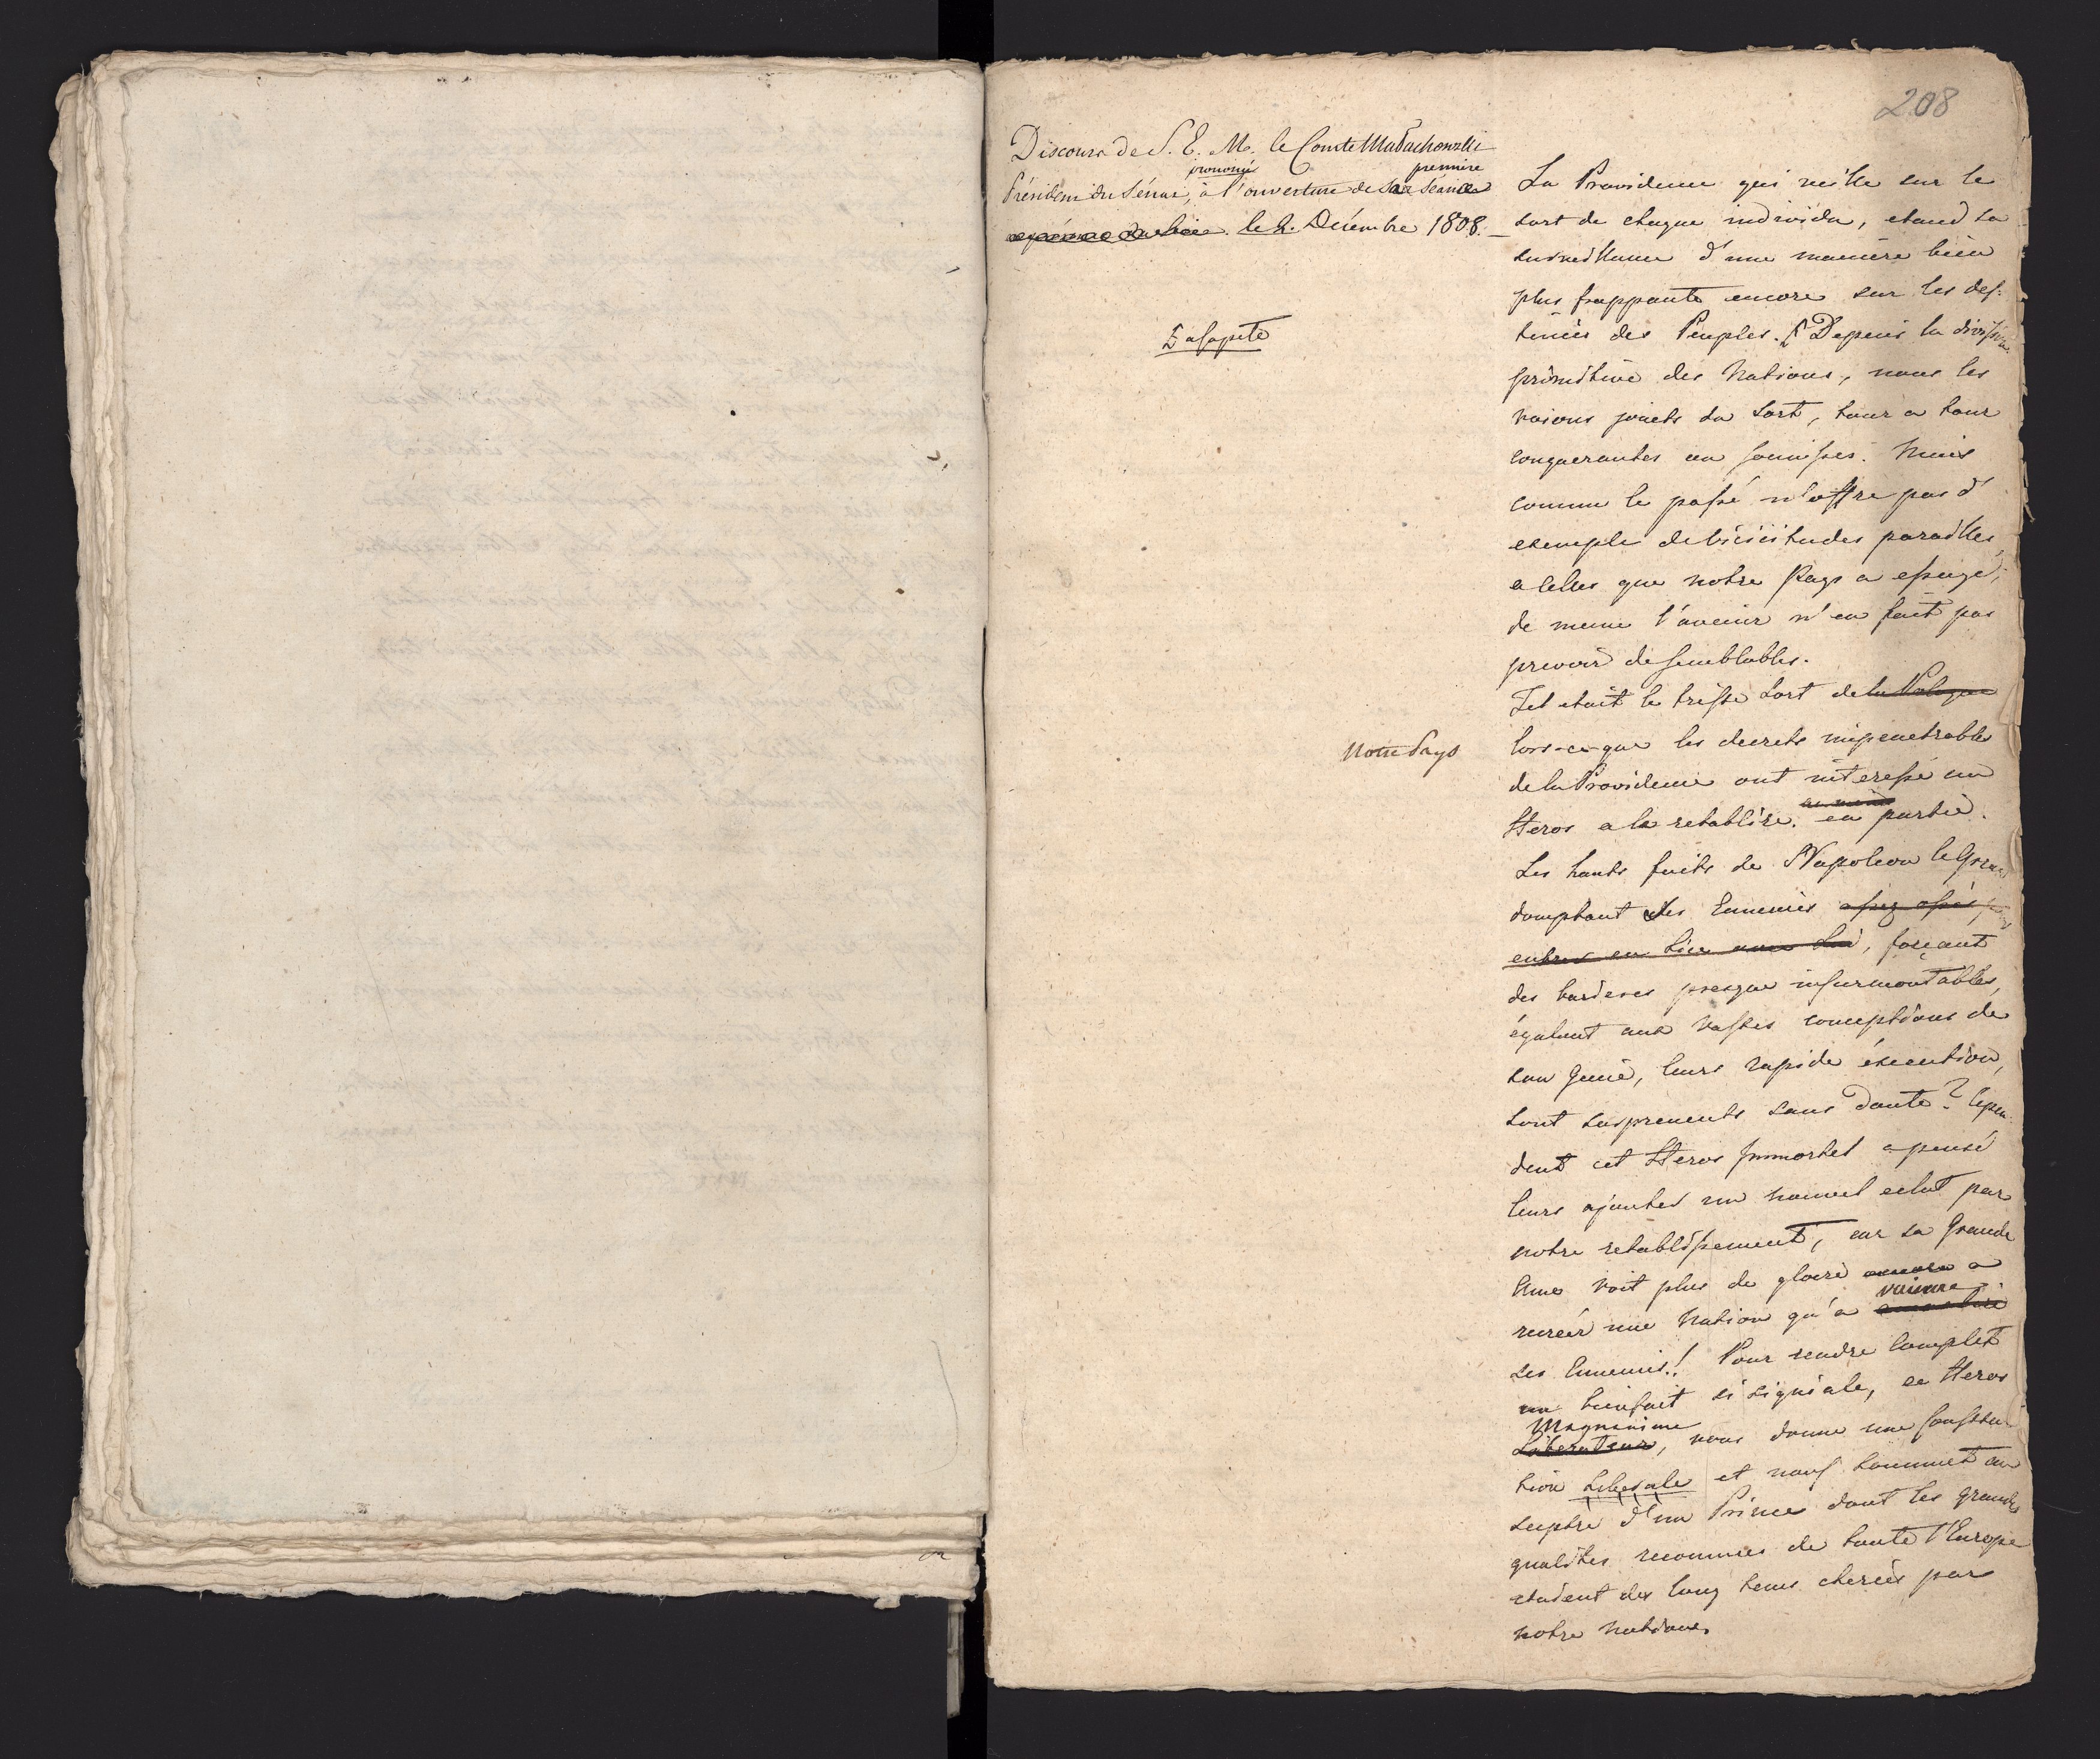 208
Discours de S. E. M. le Comte Małachowski
prononcé première
Président du Sénat, à l'ouverture de sa séance
le 2. Décembre 1808.
La Providence qui veille sur le
sort de chaque individu, etand sa
surveillance d'une manière bien
plus frappante encore sur les des-
tinées des Peuples. Depuis la division
primitive des Nations, nous les
voions jouets du Sort, tour a tour
conquerantes ou soumises. Mais
comme le passé n'offre pas d'
exemple de vicicitudes pareilles
a celles que notre Pays a essuyé,
de meme l'avenir n'en fait pas
prevoir de semblables.
Tel etait le triste Sort de la Pologne
Notre Pays
lors-ce-que les decrets impenetrables
de la Providence ont interessé un
Heros a la retablire. en partie.
Les hauts faits de Napoleon le Grand
domptant des Ennemies assez osés p
entrer en Lice avec Lui, forçant
des barieres presque insurmontables,
égalant aux vastes conceptions de
son Genie, leurs rapide éxecution,
sont surprenents sans doute? Cepen-
dent cet Heros Immortel a pensé
leurs ajouter un nouvel eclat par
notre retablissement, car sa Grande
Ame voit plus de gloire encore a
vaincre
recreér une Nation qu'a
ses Ennemis! Pour rendre complet
un bienfait si signiale, ce Heros
Magnanime
Liberateur, nous donne une Constitu
tion Liberale et nous soumet au
sceptre d'un Prince dont les grandes
qualites reconnues de toute l'Europe
etadent des long tems cheriés par
notre nation.